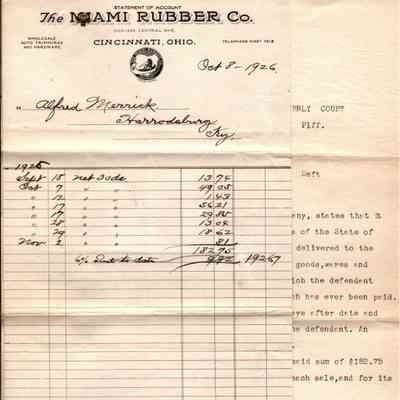 STATEMENT OF ACCOUNT
The MIAMI RUBBER Co.
WHOLESALE
AUTO TRIMMINGS
AND HARDWARE
CENTRAL AVE.
CINCINNATI, OHIO.
TELEPHONE WEST
Oct 8 - 1926
Alfred Merrick
Harrodsburg
Ky.
1925
Sept 15 net 30 ds 13 74
Oct 7 " " 49 05
" 12 " " 1 43
" 17 " " 56 21
" 17 " " 29 85
" 28 " " 13 04
" 29 " " 18 62
Nov 2 " " 81
182 75
6% Int to date 9 92 192 67
ERLY COURT
PLFF.
Deft
any, states that
e of the State of
delivered to the
goods, wares and
ich the defendant
ch has ever been paid.
ays after date and
he defendant. An
said sum of $182.75
each sale, and for its